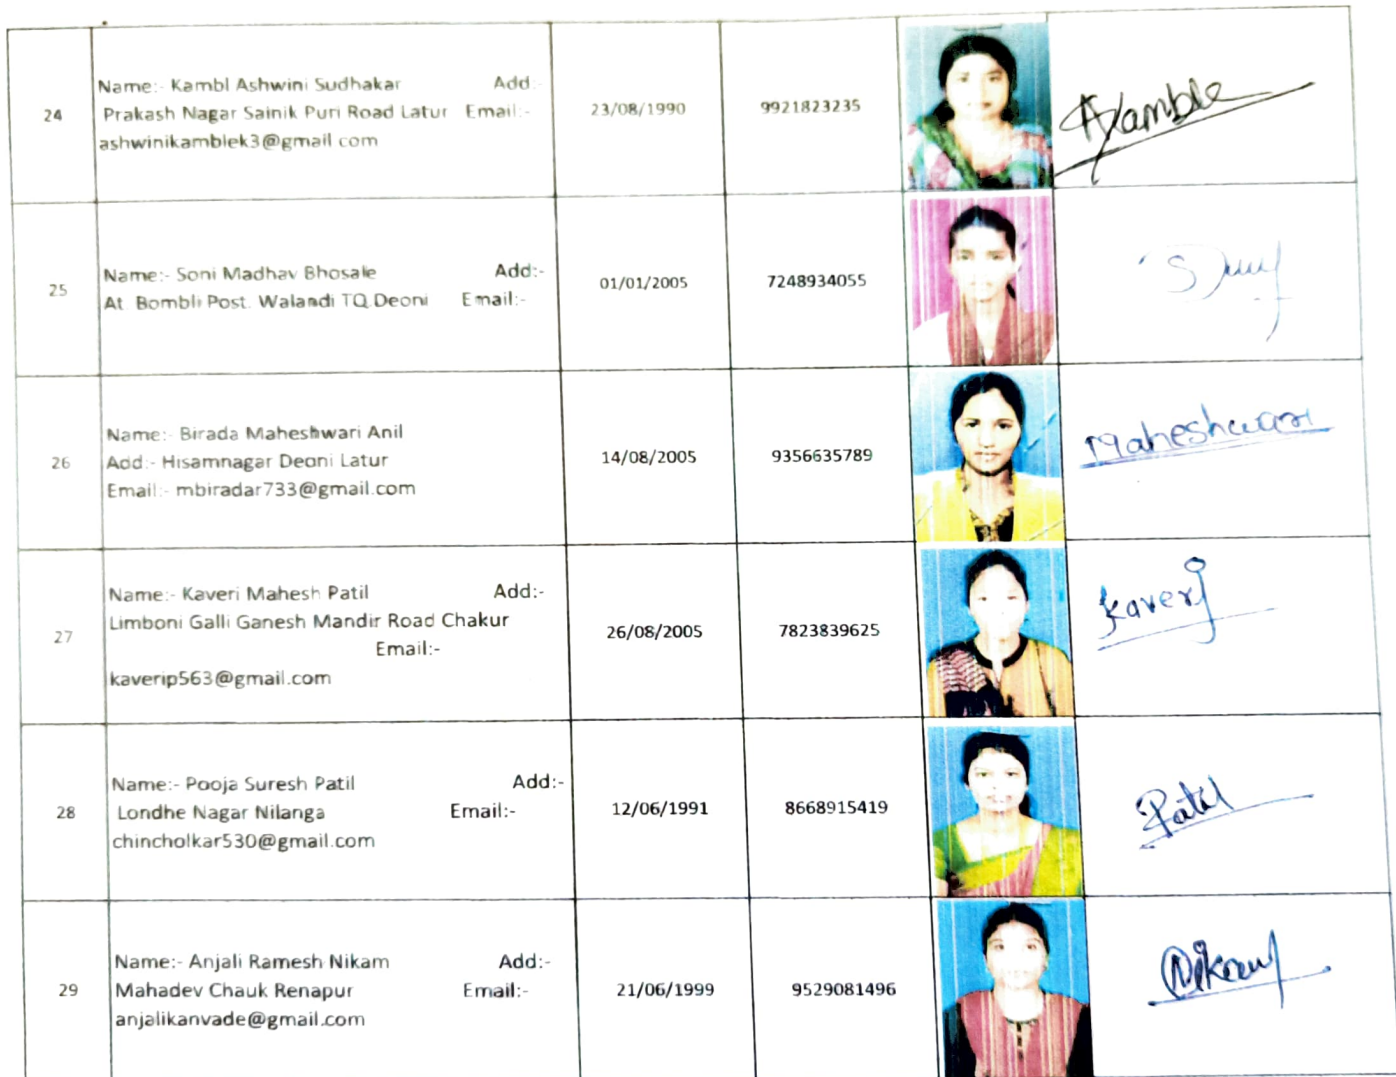 24
Name:- Kambl Ashwini Sudhakar Add:-
Prakash Nagar Sainik Puri Road Latur Email:-
ashwinikamblek3@gmail com
23/08/1990
9921823235
AKamble
25
Name:- Soni Madhav Bhosale Add:-
At Bombli Post. Walandi TQ.Deoni Email:-
01/01/2005
7248934055
26
Name:- Birada Maheshwari Anil
Add:- Hisamnagar Deoni Latur
Email:- mbiradar733@gmail.com
14/08/2005
9356635789
Maheshwari
27
Name:- Kaveri Mahesh Patil Add:-
Limboni Galli Ganesh Mandir Road Chakur
Email:-
kaverip563@gmail.com
26/08/2005
7823839625
Kaveri
28
Name:- Pooja Suresh Patil Add:-
Londhe Nagar Nilanga Email:-
chincholkar530@gmail.com
12/06/1991
8668915419
Patil
29
Name:- Anjali Ramesh Nikam Add:-
Mahadev Chauk Renapur Email:-
anjalikanvade@gmail.com
21/06/1999
9529081496
Nikam